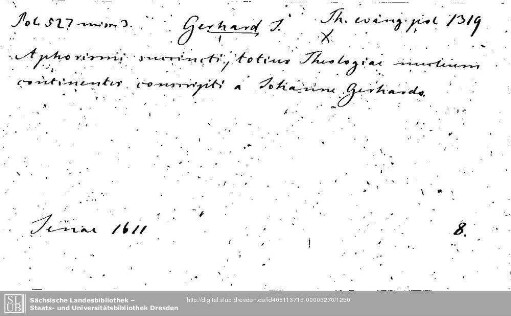 Pol. 527 misc 3. Gerhard, J. Th. evang. pol. 1319
X
Aphorismi succincti, totius Theologiae nucleum
continentes conscripti a Johanne Gerhardo.
Jenae 1611 8.
Sächsische Landesbibliothek –
Staats- und Universitätsbibliothek Dresden